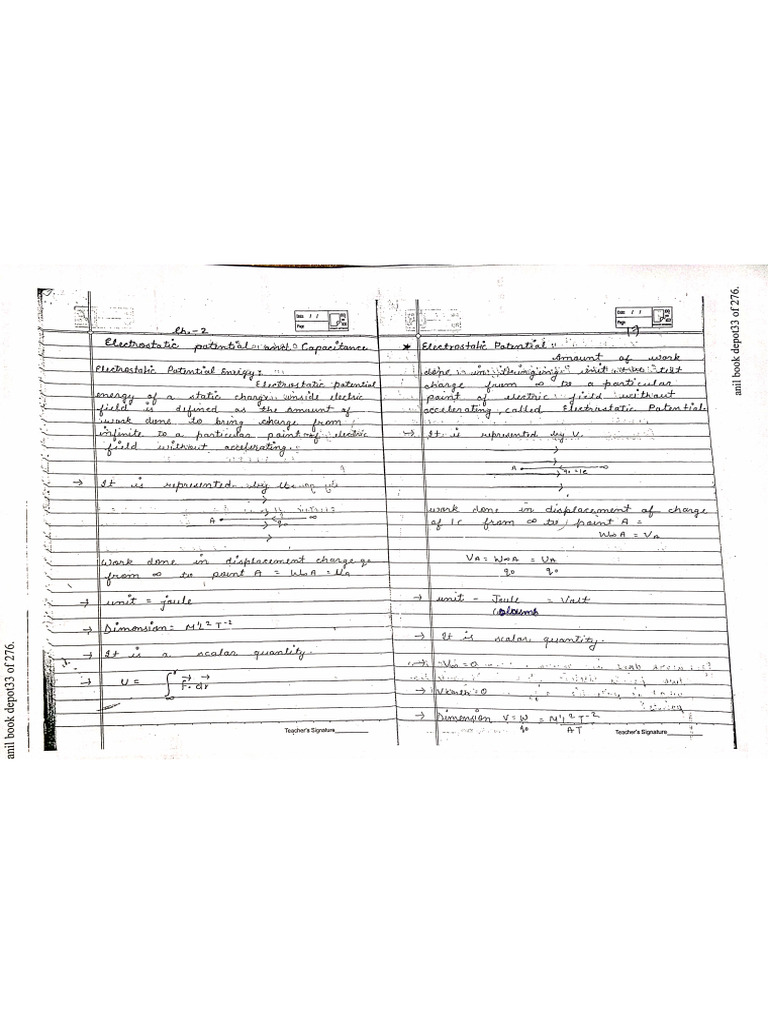 Ch.-2
Electrostatic potential and Capacitance
Electrostatic Potential Energy:
Electrostatic potential
energy of a static charge inside electric
field is defined as the amount of
work done to bring charge from
infinite to a particular point of electric
field without accelerating.
→ It is represented by U
A ∞
q₀
Work done in displacement charge q₀
from ∞ to point A = W∞A = UA
→ unit = joule
→ Dimension = M¹L²T⁻²
→ It is a scalar quantity.
→ U = ∫ F⃗. dr⃗
∞
Teacher's Signature
Date
Page
19
* Electrostatic Potential:
Amount of work
done in bringing unit +ve test
charge from ∞ to a particular
point of electric field without
accelerating, called Electrostatic Potential.
→ It is represented by V.
A q₀=1C ∞
work done in displacement of charge
of 1C from ∞ to point A =
W∞A = VA
VA = W∞A = UA
q₀ q₀
→ unit - Joule = Volt
Coloumb
→ It is scalar quantity.
→ V∞ = 0
→ Vearth = 0
→ Dimension V = W = M¹L²T⁻²
q₀ AT
Teacher's Signature
anil book depot33 of 276.
anil book depot33 of 276.